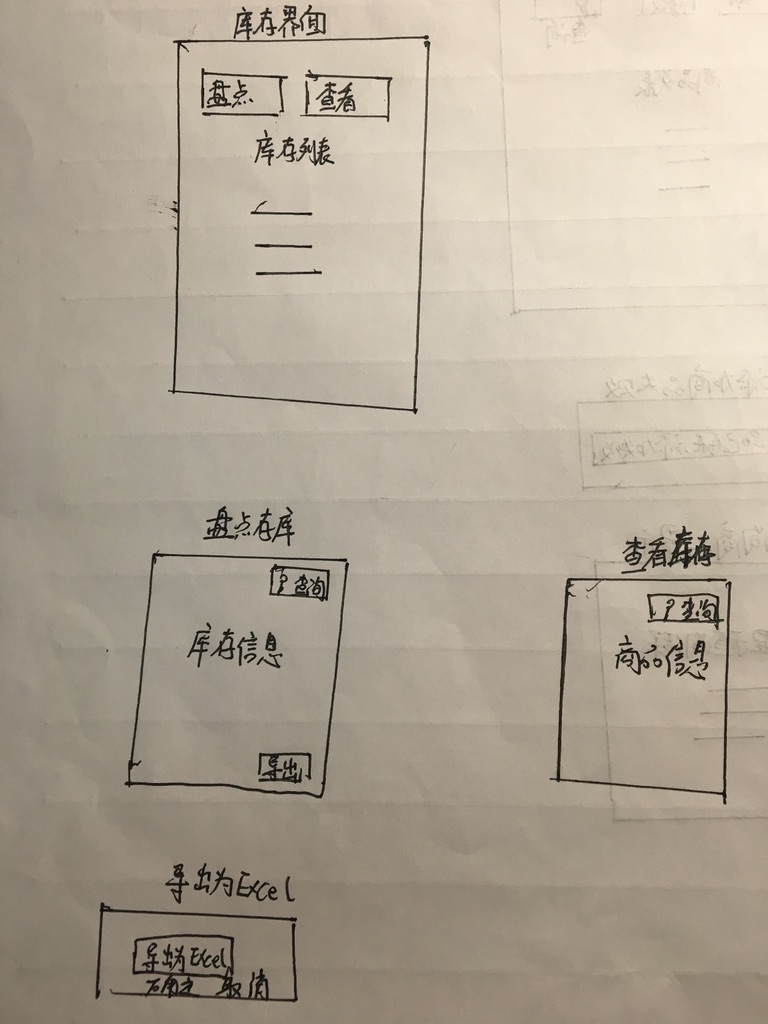 库存界面
盘点 查看
库存列表
盘点存库
查询
库存信息
导出
查看库存
查询
商品信息
导出为Excel
导出为Excel
确定 取消